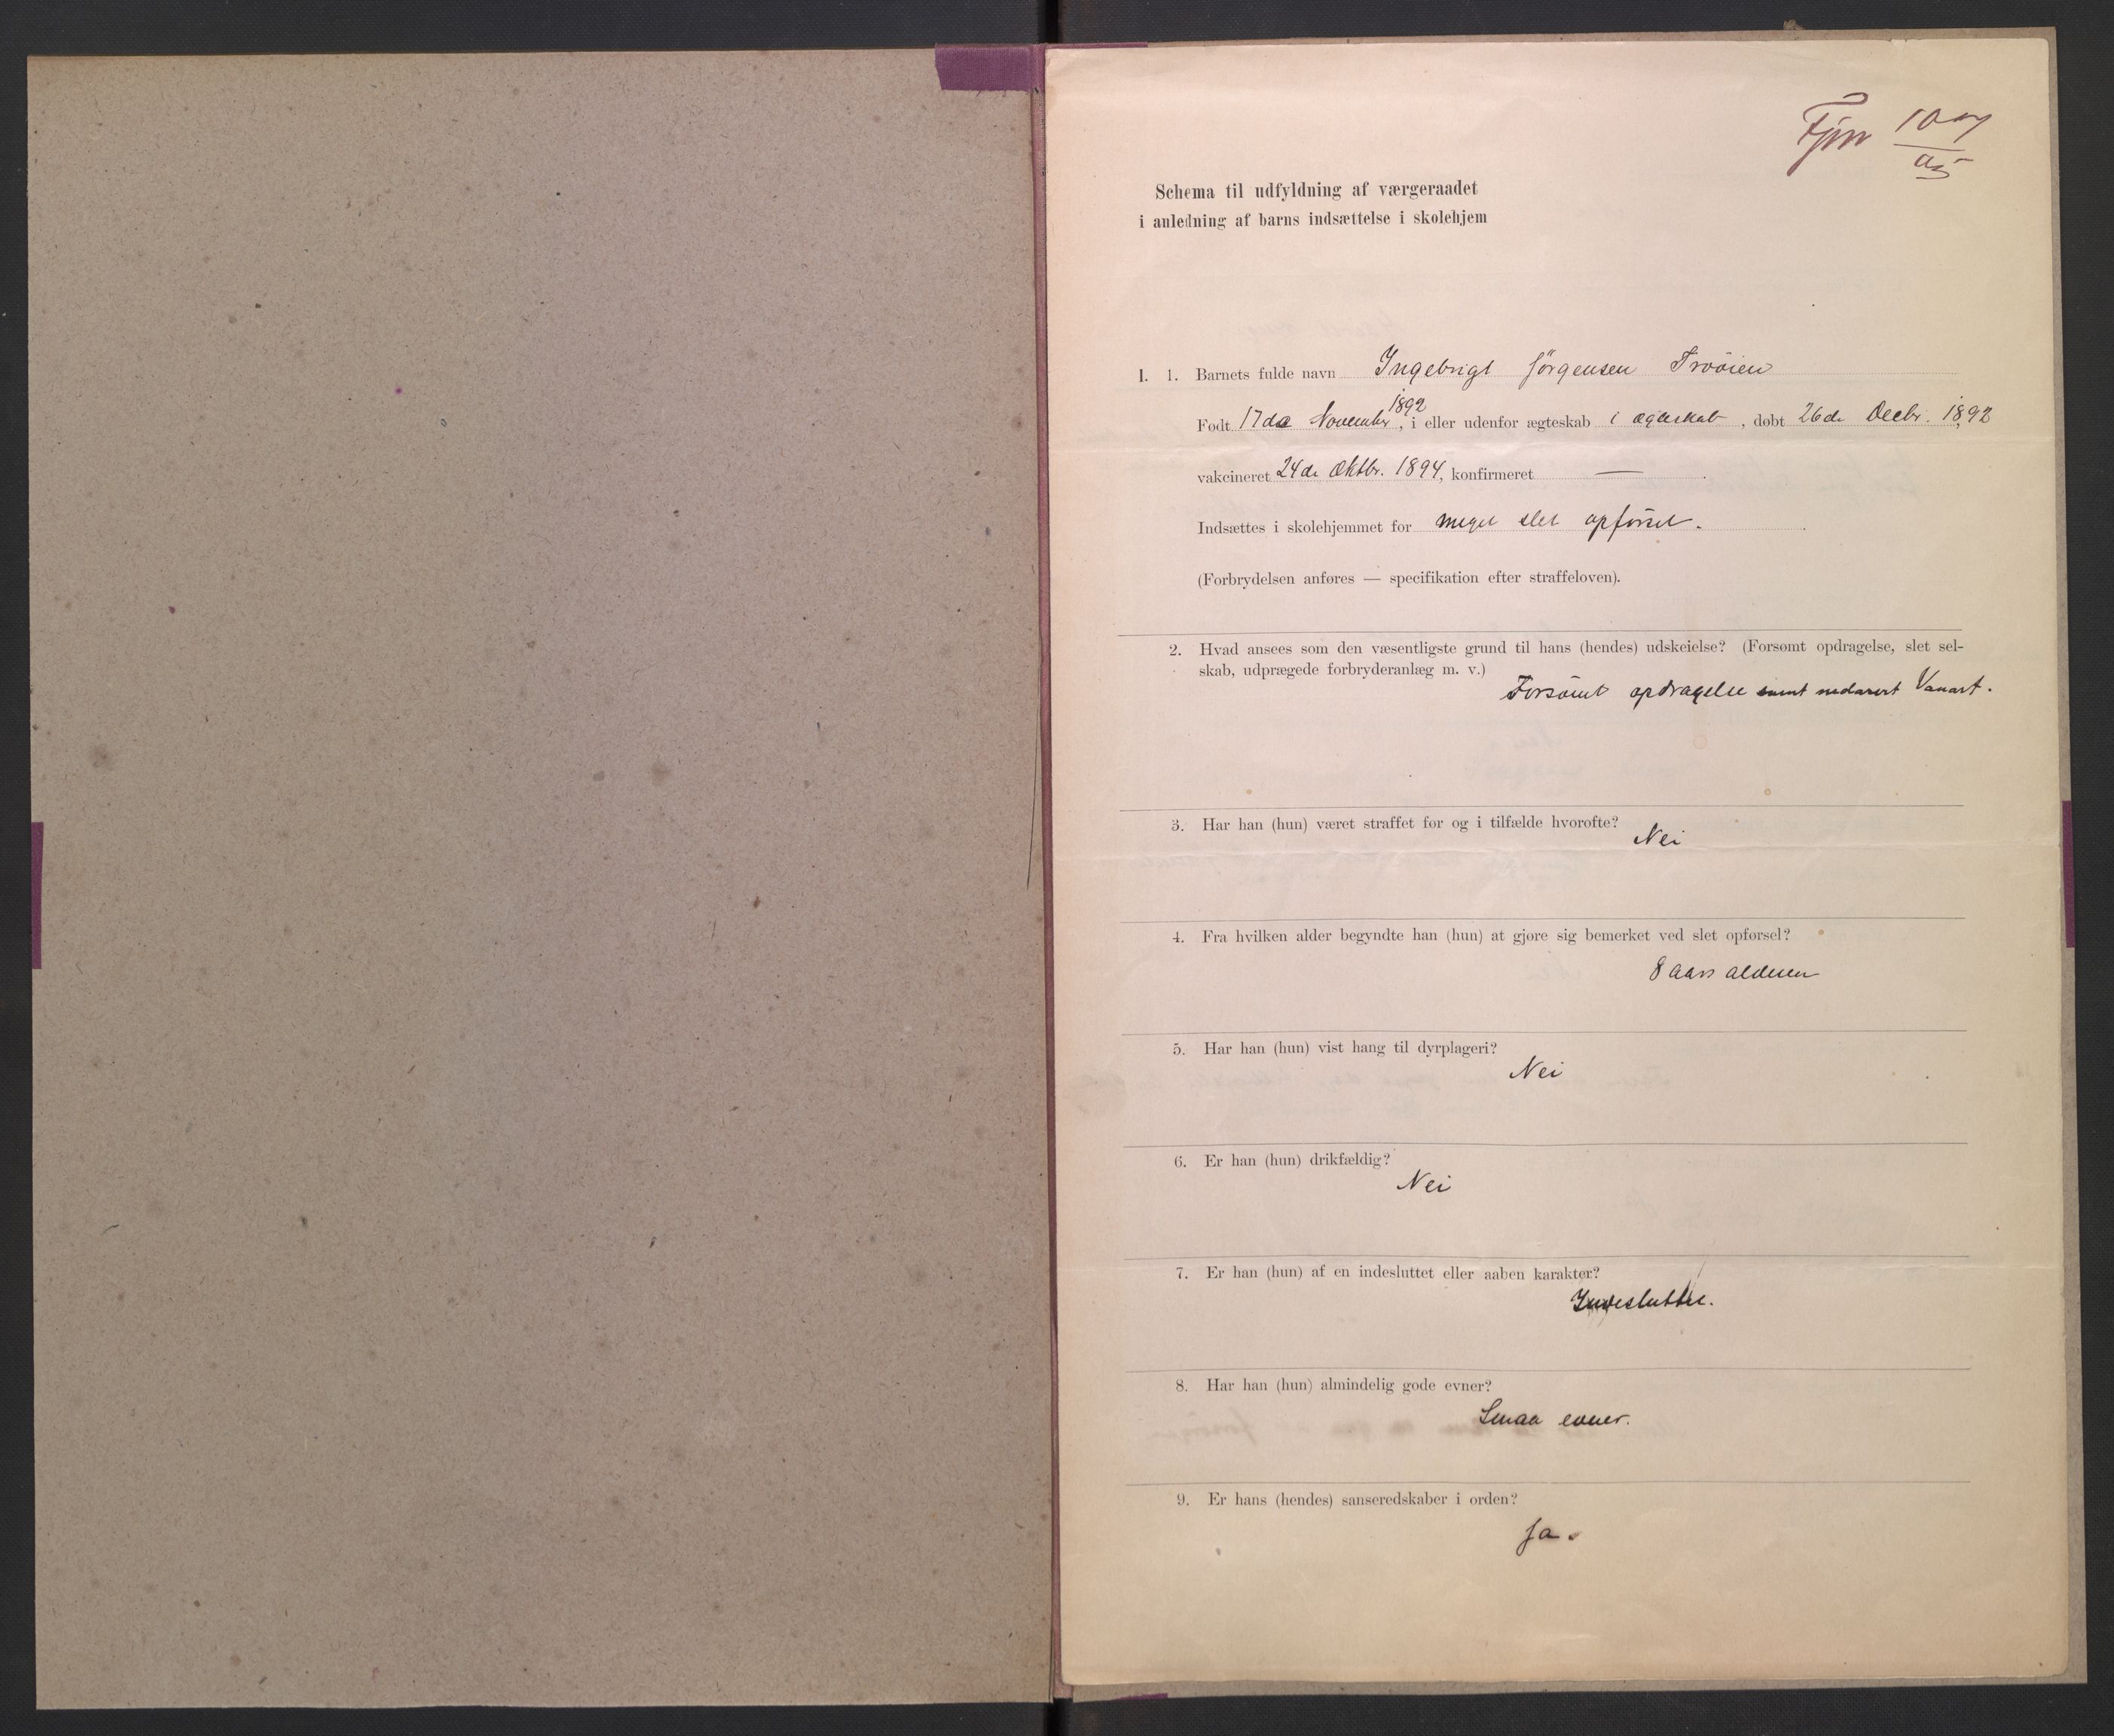 Schema til udfyldning af værgeraadet
i anledning af barns indsættelse i skolehjem
I. 1. Barnets fulde navn Ingebrigt Jörgensen Tröien
Født 17de November 1892, i eller udenfor ægteskab i ægteskab, døbt 26de Decbr. 1892
vakcineret 24de Oktbr. 1894, konfirmeret —
Indsættes i skolehjemmet for meget slet opförsel.
(Forbrydelsen anføres — specifikation efter straffeloven).
2. Hvad ansees som den væsentligste grund til hans (hendes) udskeielse? (Forsømt opdragelse, slet sel-
skab, udprægede forbryderanlæg m. v.)
Forsömt opdragelse samt nedarvet Vanart.
3. Har han (hun) været straffet før og i tilfælde hvorofte?
Nei
4. Fra hvilken alder begyndte han (hun) at gjøre sig bemerket ved slet opførsel?
8 aars alderen
5. Har han (hun) vist hang til dyrplageri?
Nei
6. Er han (hun) drikfældig?
Nei
7. Er han (hun) af en indesluttet eller aaben karakter?
Indesluttet.
8. Har han (hun) almindelig gode evner?
Smaa evner.
9. Er hans (hendes) sanseredskaber i orden?
Ja.